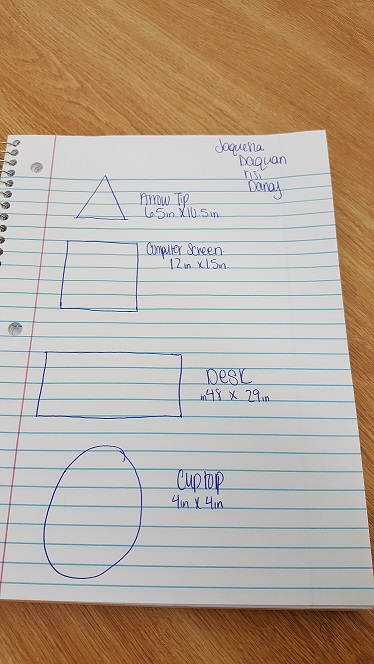 Daquan
Danaj
Arrow Tip
6.5in x 10.5in
Computer Screen
12in x 15in
Desk
in48 x 29in
Cuptop
4in x 4in